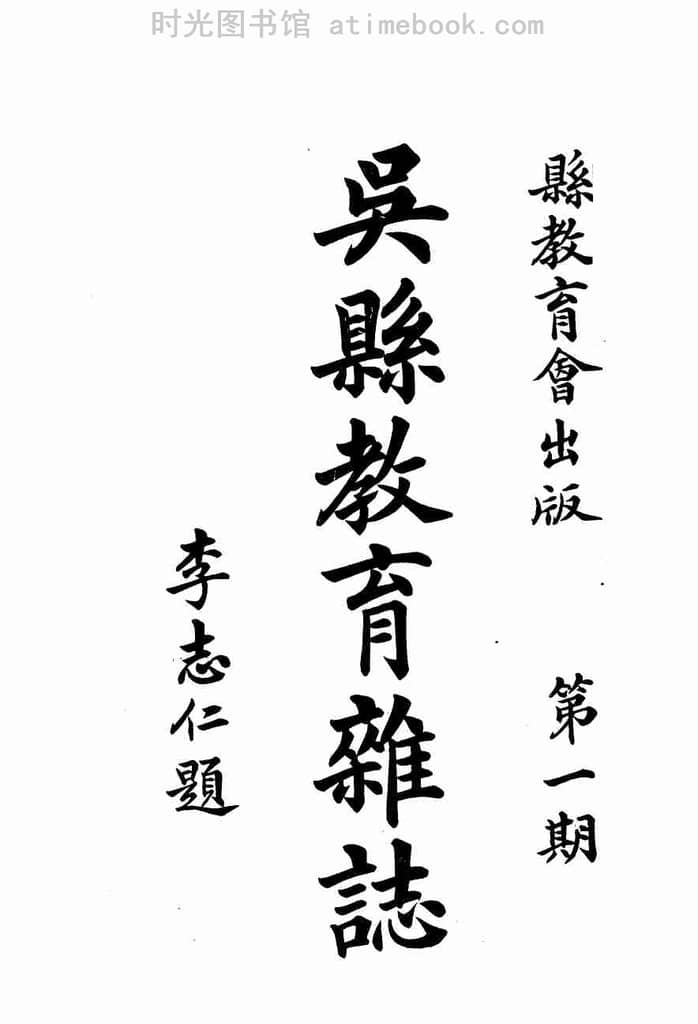 时光图书馆 atimebook.com
縣教育會出版 第一期
吳縣教育雜誌
李志仁題